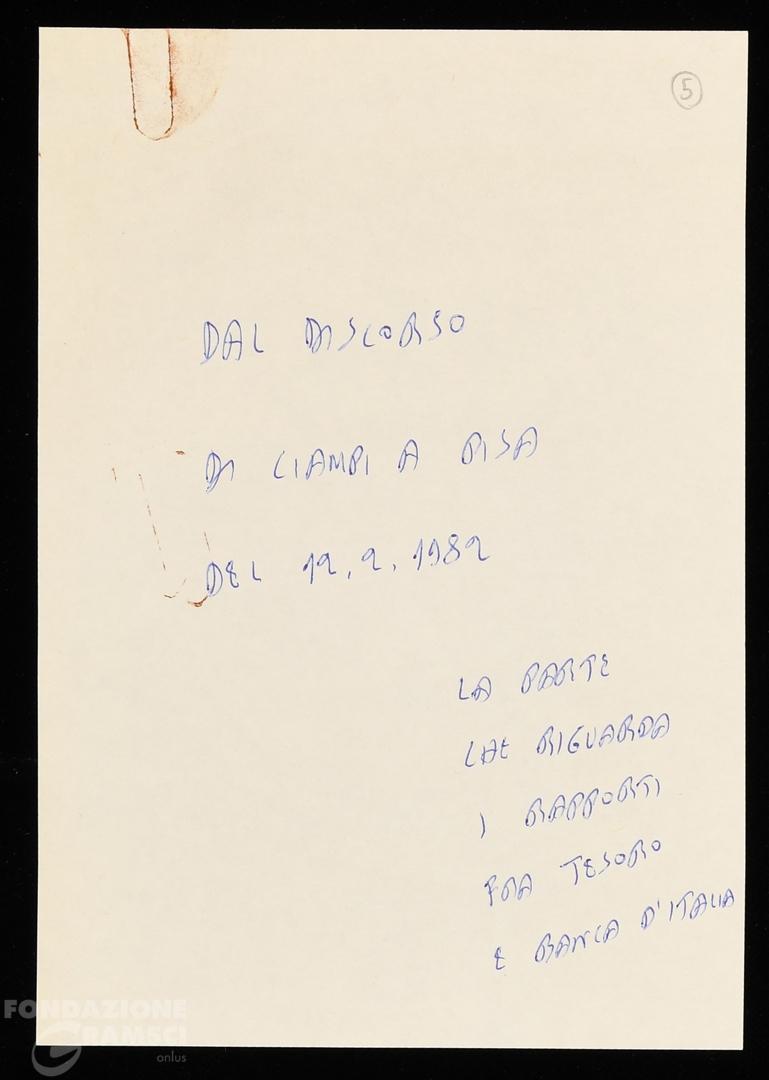 5
DAL DISCORSO
DI CIAMPI A PISA
DEL 12.2.1982
LA PARTE
CHE RIGUARDA
I RAPPORTI
FRA TESORO
E BANCA D'ITALIA
FONDAZIONE
GRAMSCI
onlus